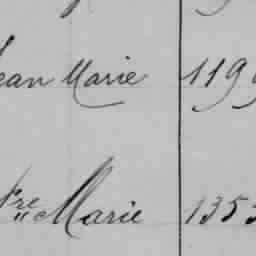 Jean Marie 1199
fre „ Marie 1353